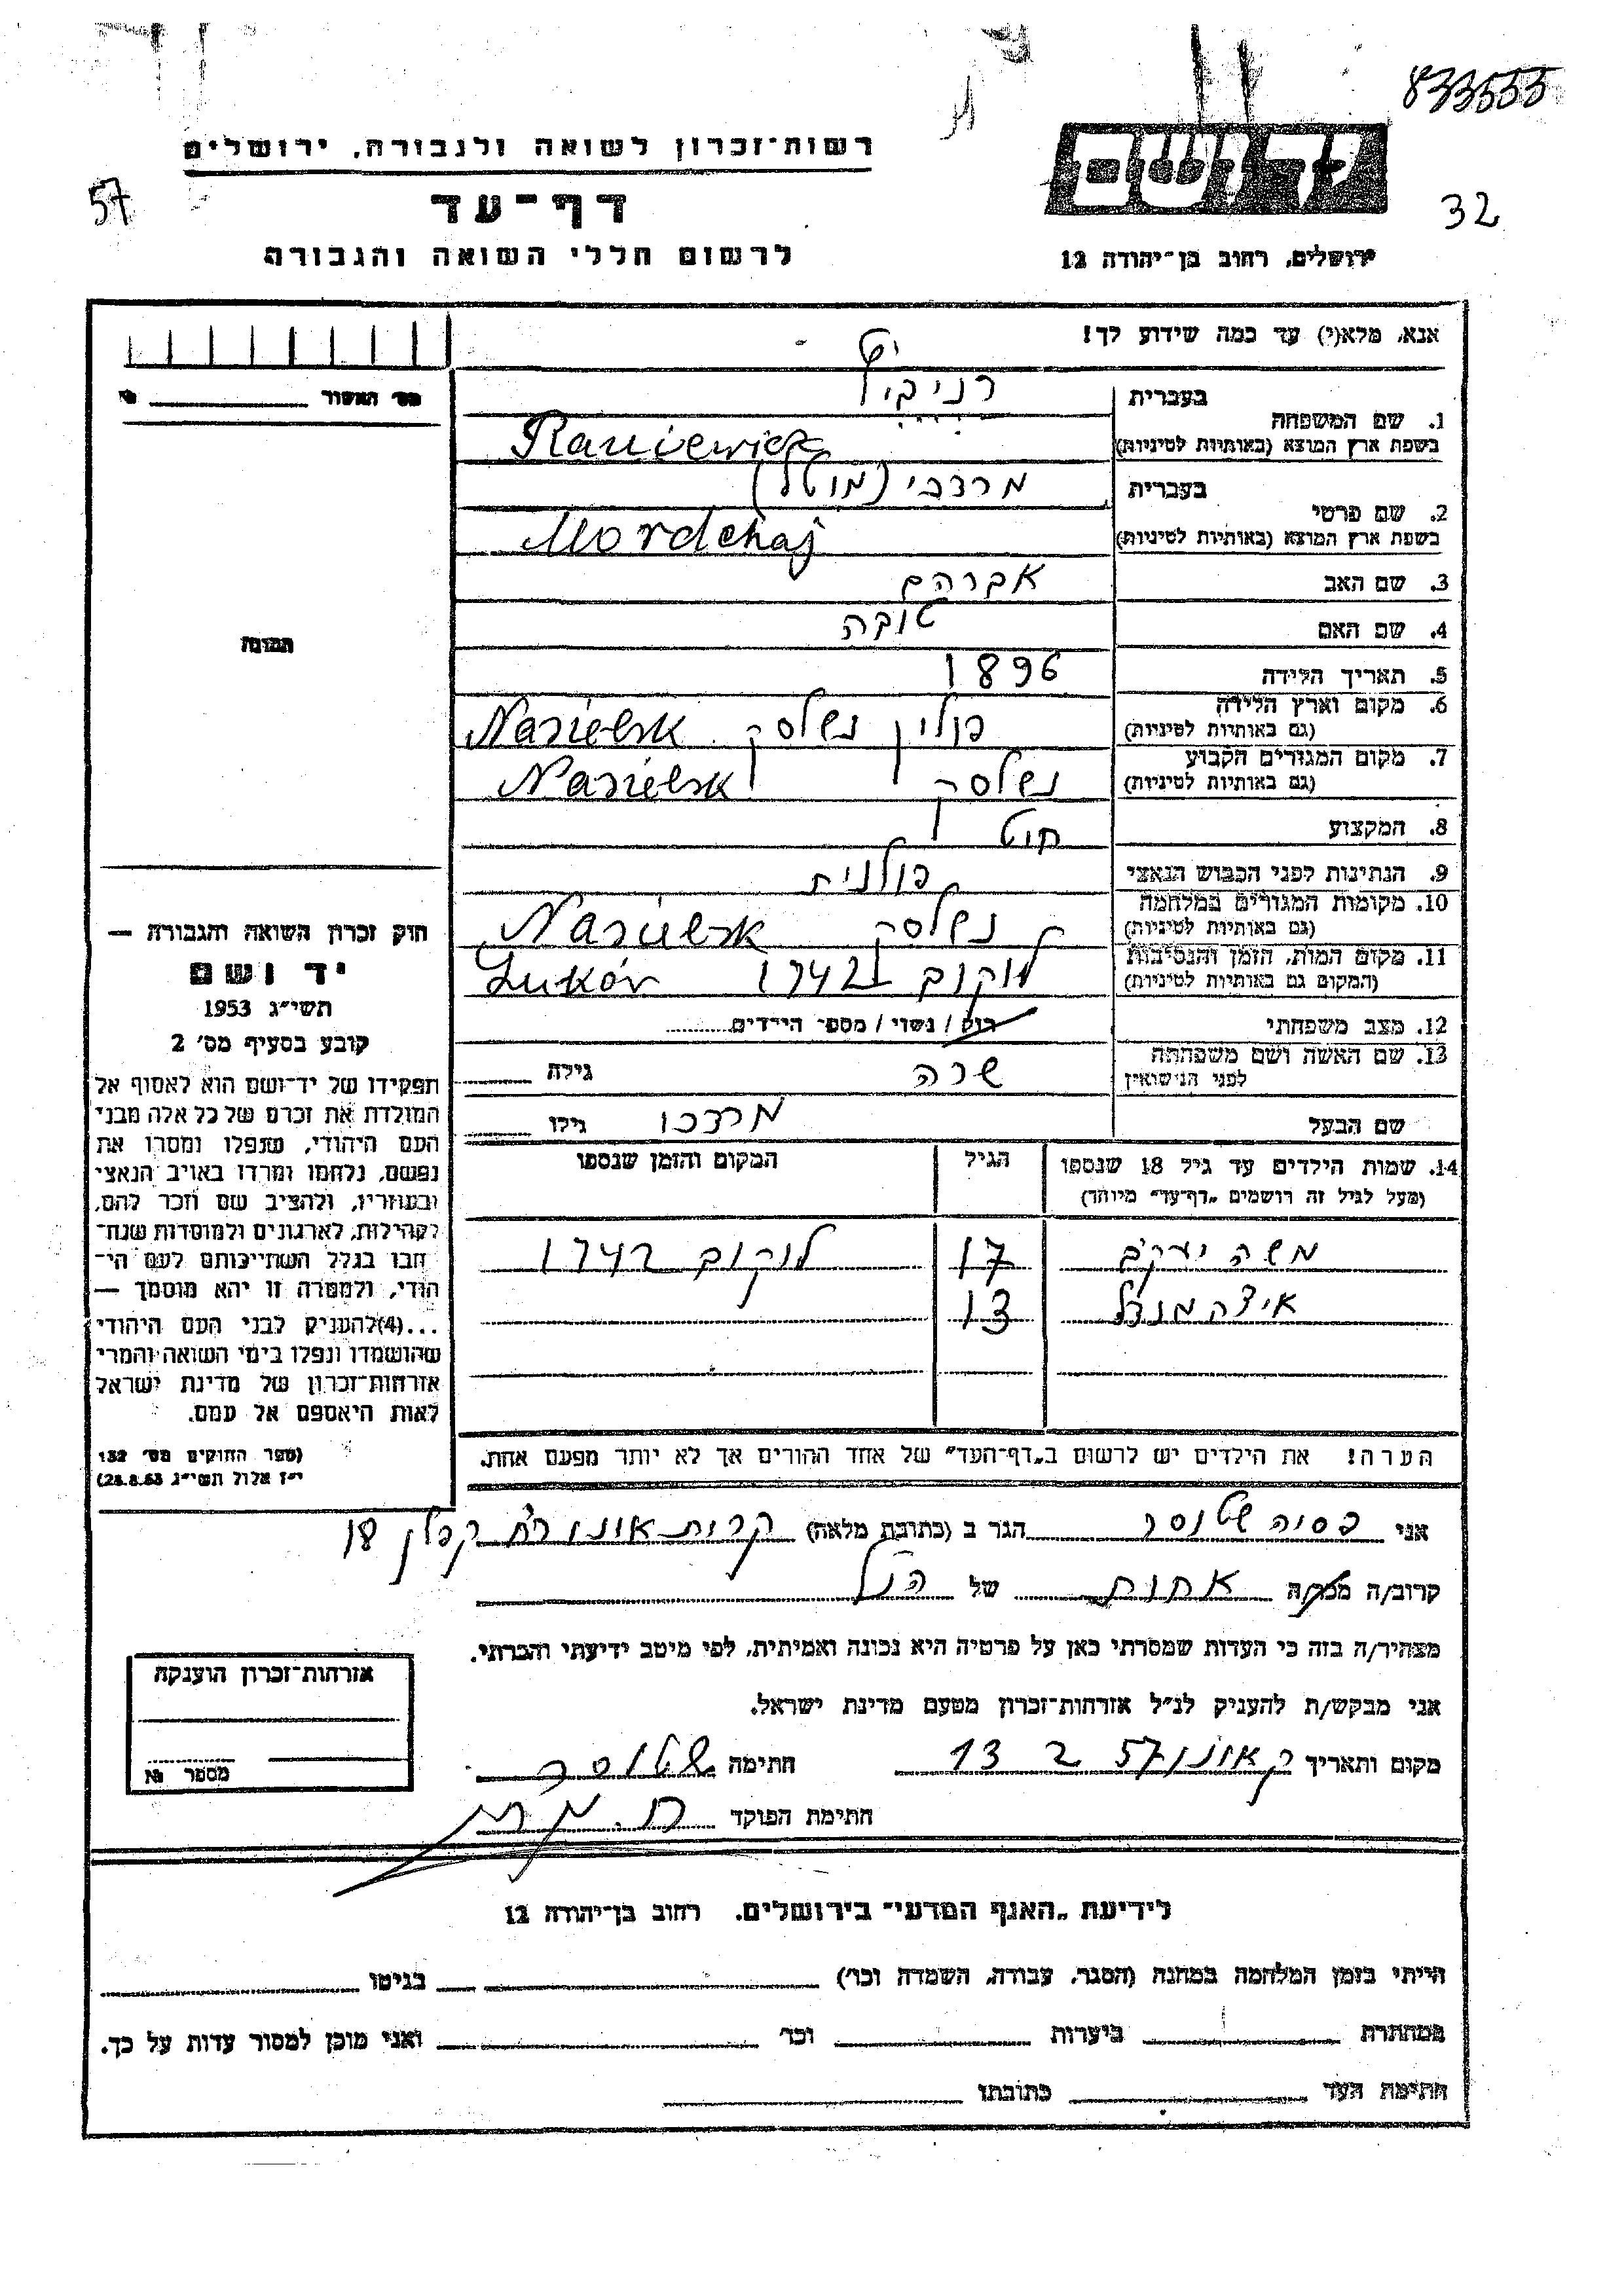 833555
רשות-זכרון לשואה ולגבורה, ירושלים
57
דף-עד
32
לרשום חללי השואה והגבורה
ירושלים, רחוב בן-יהודה 12
אנא, מלא(י) עד כמה שידוע לך!
מס' האשור № 
1. שם המשפחה
בעברית
בשפת ארץ המוצא (באותיות לטיניות)
Raniewicz
2. שם פרטי
בעברית מרדכי (מוטל)
בשפת ארץ המוצא (באותיות לטיניות) Mordchaj
3. שם האב אברהם
4. שם האם טובה
5. תאריך הלידה 1896
6. מקום וארץ הלידה (גם באותיות לטיניות) פולין נשלסק Nasielsk
7. מקום המגורים הקבוע (גם באותיות לטיניות) נשלסק Nasielsk
8. המקצוע
9. הנתינות לפני הכבוש הנאצי פולנית
10. מקומות המגורים במלחמה (גם באותיות לטיניות) נשלסק Nasielsk
11. מקום המות, הזמן והנסיבות (המקום גם באותיות לטיניות) לוקוב 1942 Lukóv
12. מצב משפחתי רוק / נשוי / מספר הילדים
13. שם האשה ושם משפחתה לפני הנישואין שרה גילה
שם הבעל מרדכי גילו
14. שמות הילדים עד גיל 18 שנספו
(מעל לגיל זה רושמים „דף-עד" מיוחד)
הגיל
המקום והזמן שנספו
משה יעקב 17 לוקוב 1942
13
הערה! את הילדים יש לרשום ב„דף-העד" של אחד ההורים אך לא יותר מפעם אחת.
התמונה
חוק זכרון השואה והגבורה —
יד ושם
תשי"ג 1953
קובע בסעיף מס' 2
תפקידו של יד-ושם הוא לאסוף אל
המולדת את זכרם של כל אלה מבני
העם היהודי, שנפלו ומסרו את
נפשם, נלחמו ומרדו באויב הנאצי
ובעוזריו, ולהציב שם וזכר להם,
לקהילות, לארגונים ולמוסדות שנח-
רבו בגלל השתייכותם לעם הי-
הודי, ולמטרה זו יהא מוסמך —
...(4)להעניק לבני העם היהודי
שהושמדו ונפלו בימי השואה והמרי
אזרחות-זכרון של מדינת ישראל
לאות היאספם אל עמם.
(ספר החוקים מס' 132
י"ז אלול תשי"ג 28.8.53)
אני פסיה שלוסר הגר ב (כתובת מלאה) קרית אונו רח' קפלן 18
קרוב/ה מכר/ה אחות של הנ"ל
מצהיר/ה בזה כי העדות שמסרתי כאן על פרטיה היא נכונה ואמיתית, לפי מיטב ידיעתי והכרתי.
אני מבקש/ת להעניק לנ"ל אזרחות-זכרון מטעם מדינת ישראל.
מקום ותאריך ק אונו 13 2 57 חתימה שלוסר
חתימת הפוקד
אזרחות-זכרון הוענקה
מספר №
לידיעת „האגף המדעי" בירושלים. רחוב בן-יהודה 12
הייתי בזמן המלחמה במחנה (הסגר, עבודה, השמדה וכו') בגיטו
במחתרת ביערות וכו' ואני מוכן למסור עדות על כך.
חתימת העד כתובתו